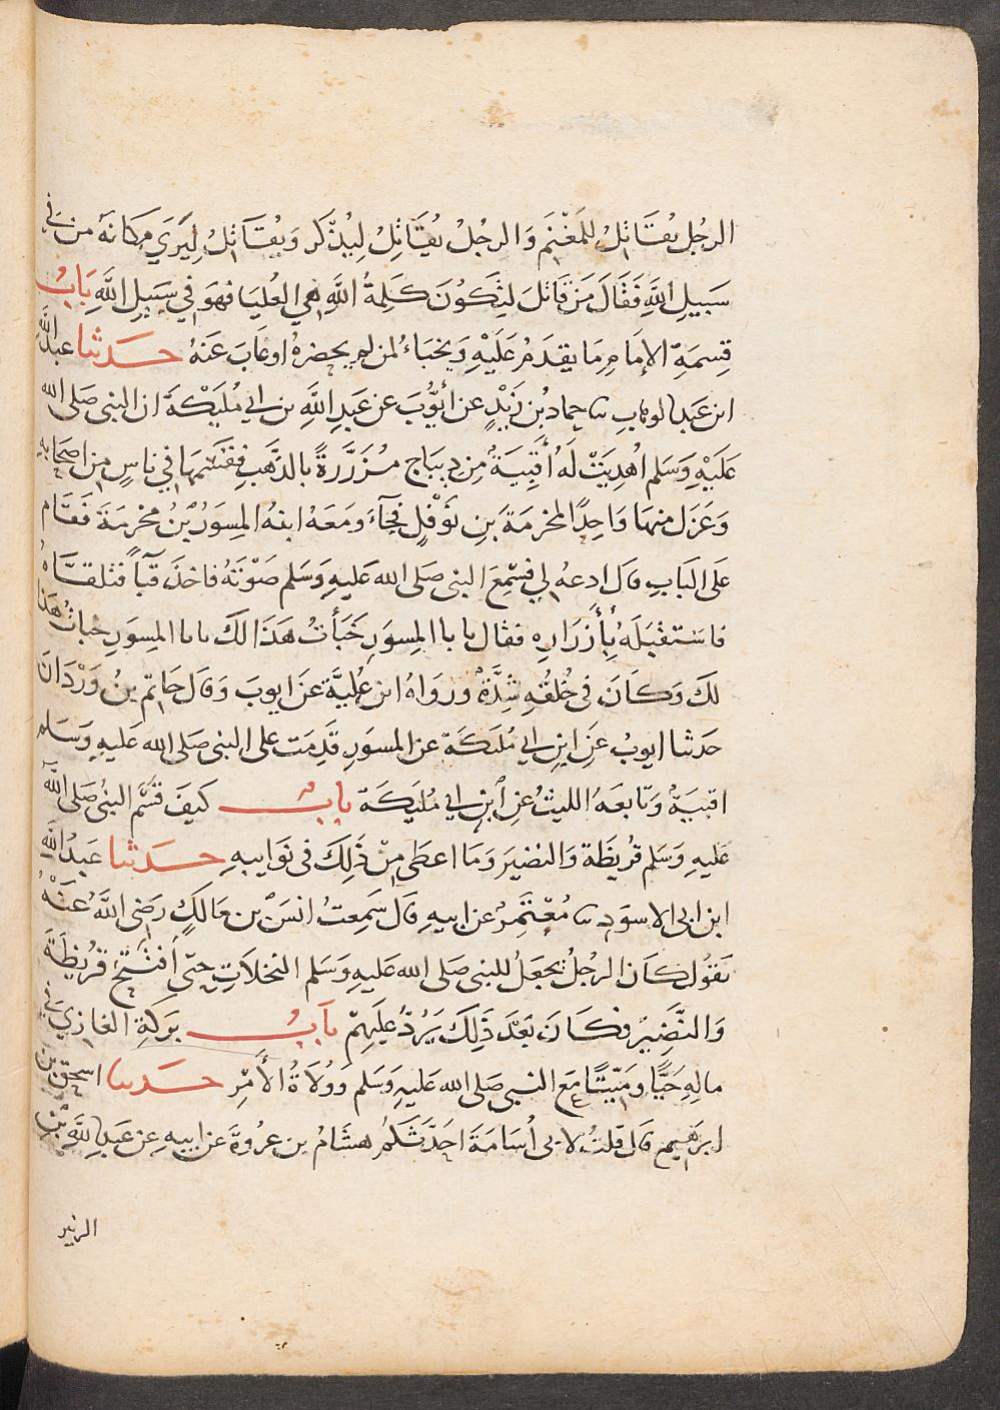 الرجُل يُقَاتِلُ لِلْمَغْنَمِ وَالرجُلُ يُقَاتِلُ لِيُذْكَر وَيُقَاتِلُ لِيَرَي مَكانَهُ من في
سَبيلِ اللَّهِ فَقَالَ مَنْ قَاتَلَ لِتَكُوْنَ كَلِمةُ اللَّهِ هي العُليَا فهوَ في سَبيلِ اللَّهِ بَابُ
قِسمَةِ الإمامِ مَا يقدَمُ عَلَيْهِ وَيخبَاءُ لمن لم يحضرهُ او غَابَ عَنهُ حدثنا عبدُ اللَّهِ
ابن عَبد الوهابِ نا حماد بُن زَيْدٍ عن أيّوُبَ عن عَبدِ اللَّهِ بن ابي مُلَيْكَةَ ان النبى صَلى الله
عَلَيْهِ وَسَلم اُهْدِيَتْ لَهُ أَقْبِيَةٌ مِن دِيبَاجٍ مُزَرَّرةً بالذَّهَبِ فقسَمهَا في ناسٍ من اصحَابه
وَعَزَل منهَا وَاحِدًا لمخرمَةَ بنِ نَوْفَلٍ فجَآءَ ومَعَهُ ابنهُ المِسوَرُ بْنُ مخرمَةَ فَقَام
عَلى البَابِ قال ادعهُ لي فسَمِعَ النبى صَلى الله عَليهِ وَسَلم صَوْتَهُ فاخذَ قبَآءً فتلقَّاهُ
فاستقْبَلَهُ بِأَزرَارِهِ فقال يا با المِسوَرِ خَبَأْتُ هَذَا لكَ يابا المِسوَرِ خبأتُ هَذَا
لكَ وَكانَ فى خُلُقهِ شِدَّةٌ ورَوَاهُ ابن عُليَّةَ عَن ايوبَ وَقال حَاتِم بنُ وَرْدَانَ
حَدثنا ايوبُ عَنِ ابنِ ابي مُلَيكَةَ عن المسوَرِ قَدِمَت على النبى صَلى الله عَليهِ وَسَلم
اقبيَةٌ وَتَابعَهُ الليثُ عَنِ ابْنِ ابي مُليَكَةَ بابُ كيفَ قَسَّم النبىُ صَلى اللَّهُ
عَليهِ وَسَلم قُريظَةَ وَالنضيرَ وَمَا اعطَى مِنْ ذَلِكَ فى نَوَايبِهِ حدثنا عَبدُ اللَّهِ
ابن ابى الاسوَدِ نا مُعْتَمِرُ عن ابيهِ قال سَمِعتُ انسَ بْن مَالكٍ رَضي اللَّهُ عَنْهُ
يَقوُل كَان الرجُلُ يجعَلُ للنبى صَلى الله عَليهِ وَسَلم النخلاتِ حتى افتَتحَ قرُيظَةَ
وَالنَّضِيرَ فكَانَ بَعْدَ ذَلِكَ يَرُدُّ عَليَهِمْ بابُ بَرَكةِ الغازي في
مالِهِ حَيًّا ومَيّتًا مَع النبى صَلى الله عَليهِ وَسَلم وَوُلاَةُ الأَمْرِ حدثنا اسحَقُ بنُ
ابرَهيم قال قلتُ لابى أُسَامَةَ احَدّثكمُ هشَامُ بن عرُوةَ عَن ابيهِ عن عَبدِ اللَّهِ بْنِ
الزبير